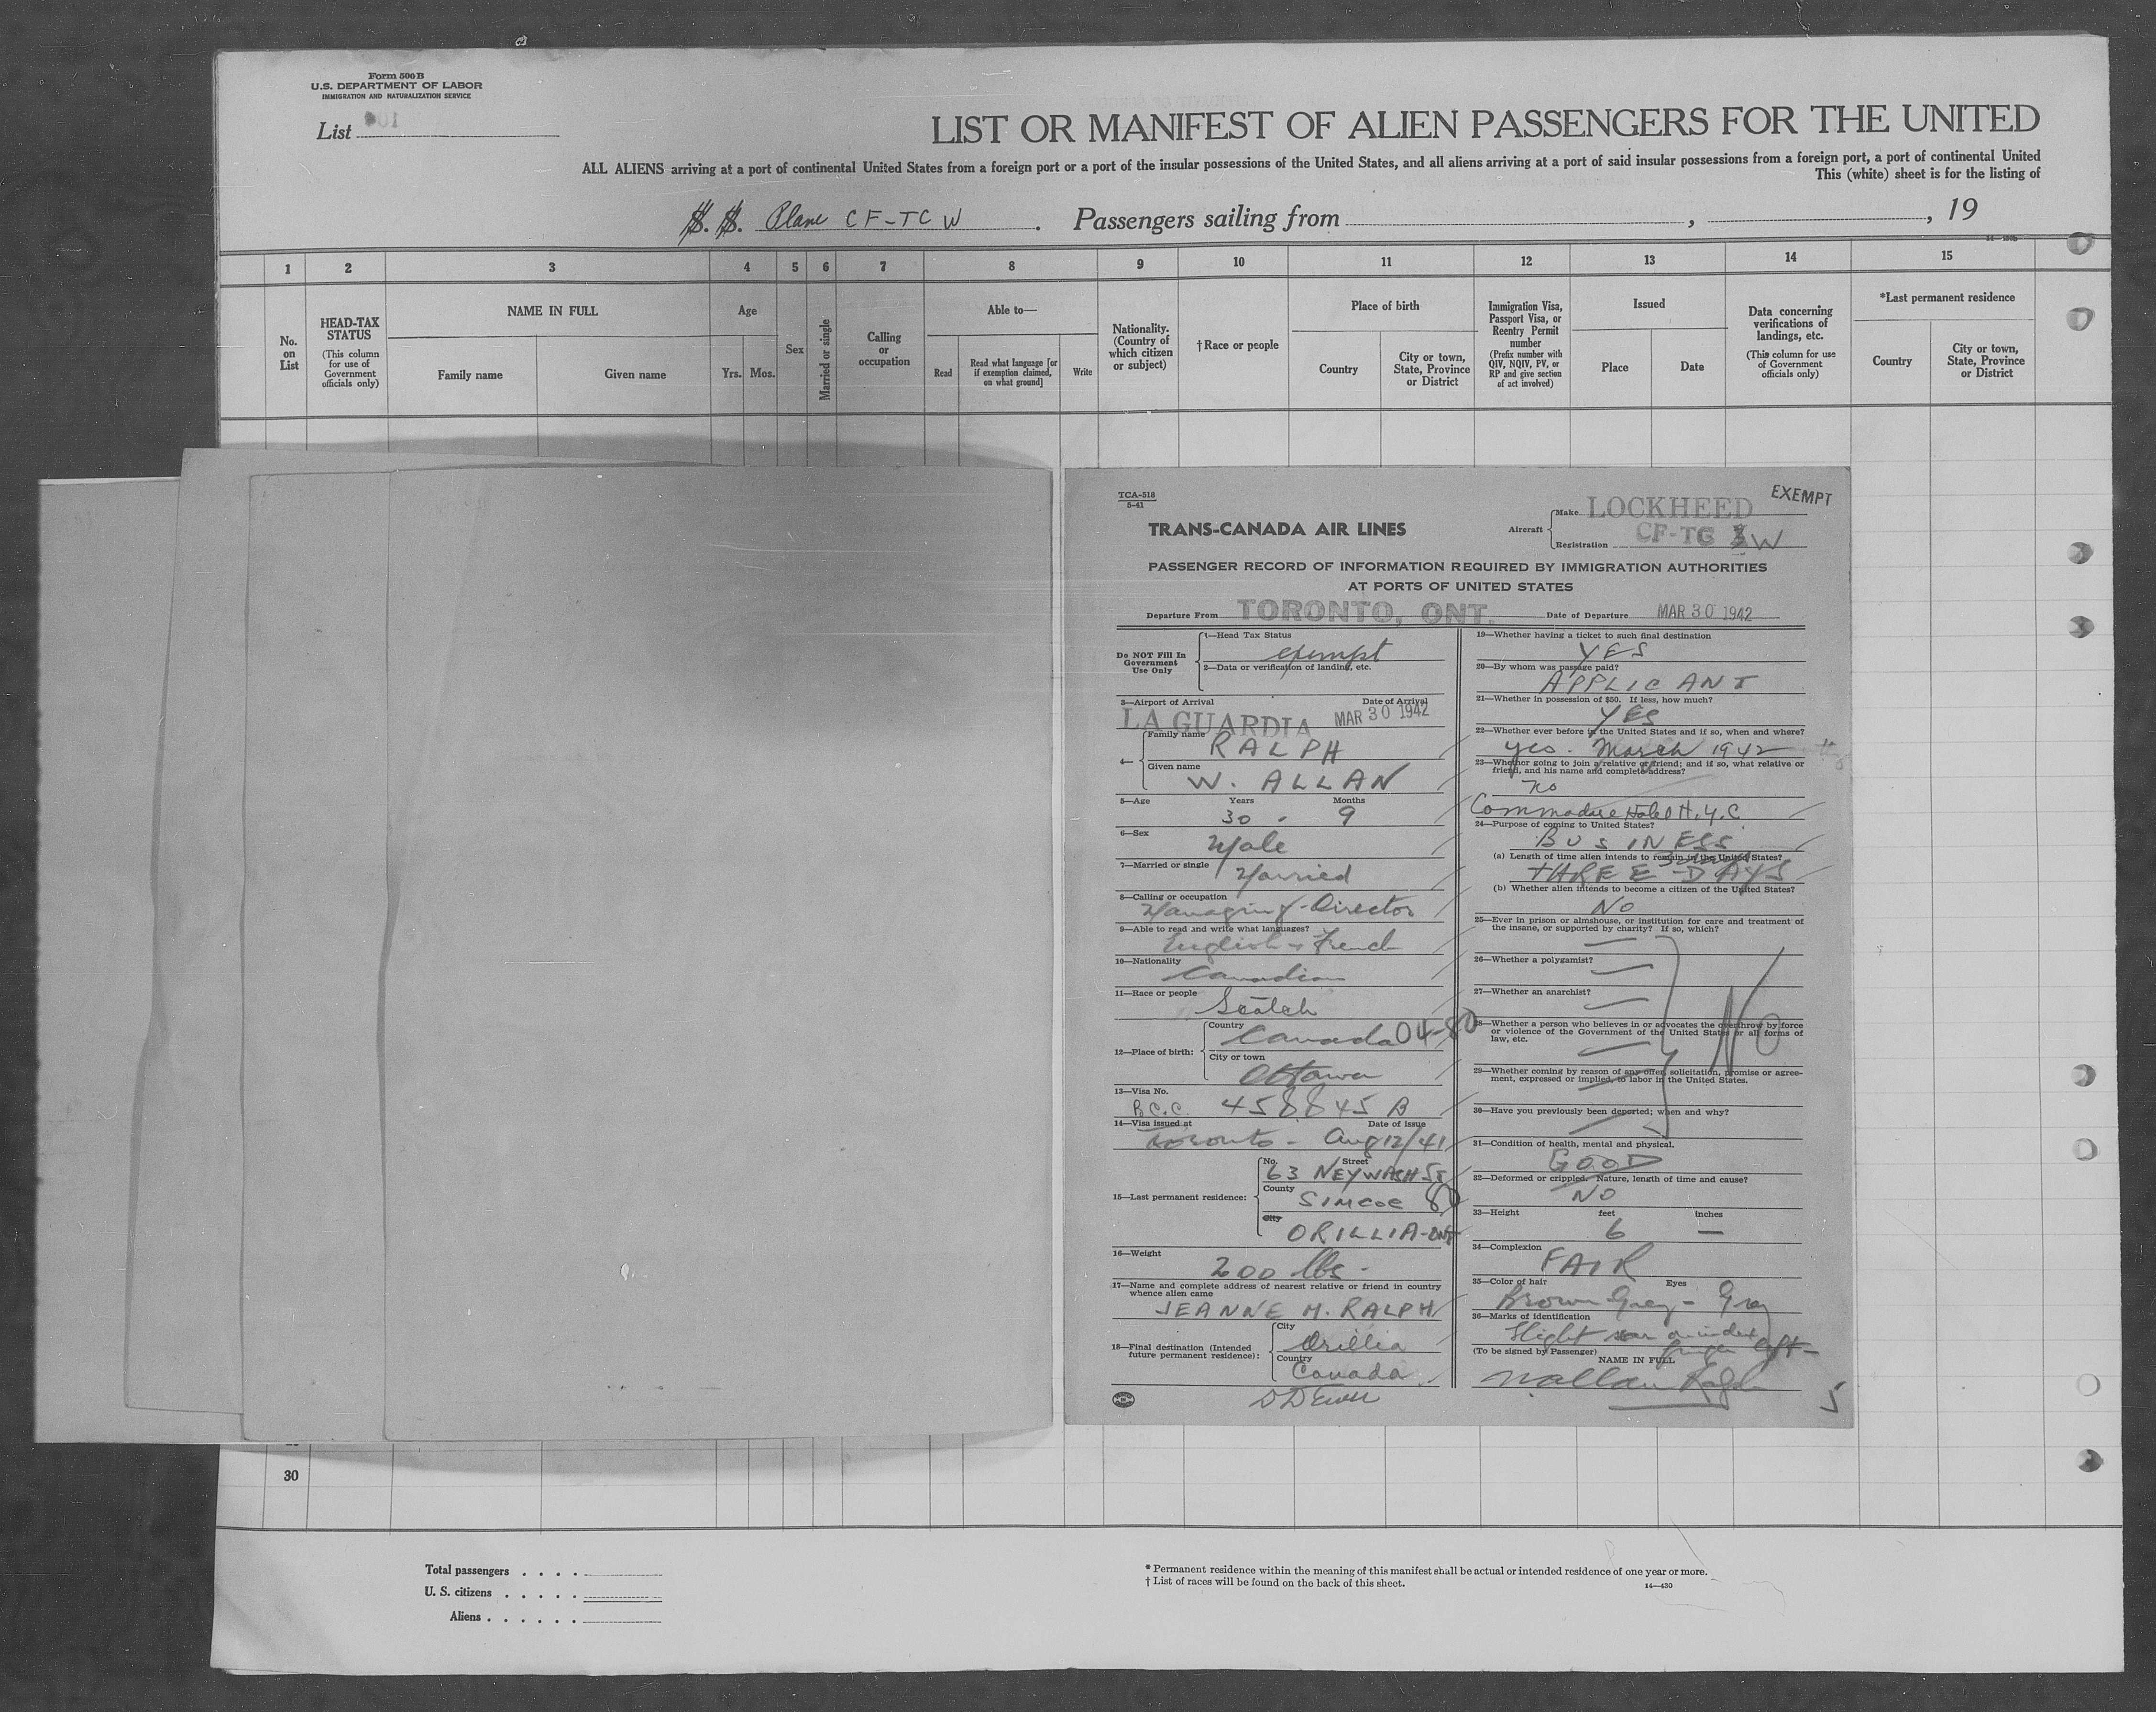 Form 500 B
U.S. DEPARTMENT OF LABOR
IMMIGRATION AND NATURALIZATION SERVICE
List
LIST OR MANIFEST OF ALIEN PASSENGERS FOR THE UNITED
ALL ALIENS arriving at a port of continental United States from a foreign port or a port of the insular possessions of the United States, and all aliens arriving at a port of said insular possessions from a foreign port, a port of continental United
This (white) sheet is for the listing of
S. S. Plane CF-TCW . Passengers sailing from , , 19
1 2 3 4 5 6 7 8 9 10 11 12 13 14 15
No. on List
HEAD-TAX STATUS
(This column for use of Government officials only)
NAME IN FULL
Family name
Given name
Age
Yrs. Mos.
Sex
Married or single
Calling or occupation
Able to—
Read
Read what language [or if exemption claimed, on what ground]
Write
Nationality. (Country of which citizen or subject)
†Race or people
Place of birth
Country
City or town, State, Province or District
Immigration Visa, Passport Visa, or Reentry Permit number
(Prefix number with QIV, NQIV, PV, or RP and give section of act involved)
Issued
Place
Date
Data concerning verifications of landings, etc.
(This column for use of Government officials only)
*Last permanent residence
Country
City or town, State, Province or District
TCA-518
5-41
EXEMPT
TRANS-CANADA AIR LINES
Aircraft
Make LOCKHEED
Registration CF-TC W
PASSENGER RECORD OF INFORMATION REQUIRED BY IMMIGRATION AUTHORITIES
AT PORTS OF UNITED STATES
Departure From TORONTO, ONT. Date of Departure MAR 30 1942
Do NOT Fill In Government Use Only
1—Head Tax Status
exempt
2—Data or verification of landing, etc.
3—Airport of Arrival Date of Arrival
LA GUARDIA MAR 30 1942
4—
Family name
RALPH
Given name
W. ALLAN
5—Age Years Months
30 - 9
6—Sex
Male
7—Married or single
Married
8—Calling or occupation
Managing-Director
9—Able to read and write what languages?
English + French
10—Nationality
Canadian
11—Race or people
Scotch
12—Place of birth:
Country
Canada 04-80
City or town
Ottawa
13—Visa No.
B.C.C. 458845 B
14—Visa issued at Date of issue
Toronto - Aug 12/41
15—Last permanent residence:
No. Street
63 NEYWASH ST
County
SIMCOE 80
City
ORILLIA-ONT
16—Weight
200 lbs-
17—Name and complete address of nearest relative or friend in country
whence alien came
JEANNE M. RALPH
18—Final destination (Intended
future permanent residence):
City
Orillia
Country
Canada
19—Whether having a ticket to such final destination
YES
20—By whom was passage paid?
APPLICANT
21—Whether in possession of $50. If less, how much?
YES
22—Whether ever before in the United States and if so, when and where?
yes. March 1942
23—Whether going to join a relative or friend; and if so, what relative or
friend, and his name and complete address?
no
Commodore Hotel N.Y.C.
24—Purpose of coming to United States?
BUSINESS
(a) Length of time alien intends to remain in the United States?
THREE DAYS
(b) Whether alien intends to become a citizen of the United States?
NO
25—Ever in prison or almshouse, or institution for care and treatment of
the insane, or supported by charity? If so, which?
26—Whether a polygamist?
27—Whether an anarchist?
No
28—Whether a person who believes in or advocates the overthrow by force
or violence of the Government of the United States or all forms of
law, etc.
29—Whether coming by reason of any offer, solicitation, promise or agree-
ment, expressed or implied, to labor in the United States.
30—Have you previously been deported; when and why?
31—Condition of health, mental and physical.
GOOD
32—Deformed or crippled. Nature, length of time and cause?
NO
33—Height feet inches
6 —
34—Complexion
FAIR
35—Color of hair Eyes
Brown Grey - Grey
36—Marks of identification
Slight scar on index
finger left-
(To be signed by Passenger)
NAME IN FULL
W Allan Ralph
5
30
Total passengers . . . .
U. S. citizens . . . . .
Aliens . . . . . .
* Permanent residence within the meaning of this manifest shall be actual or intended residence of one year or more.
† List of races will be found on the back of this sheet.
14—430